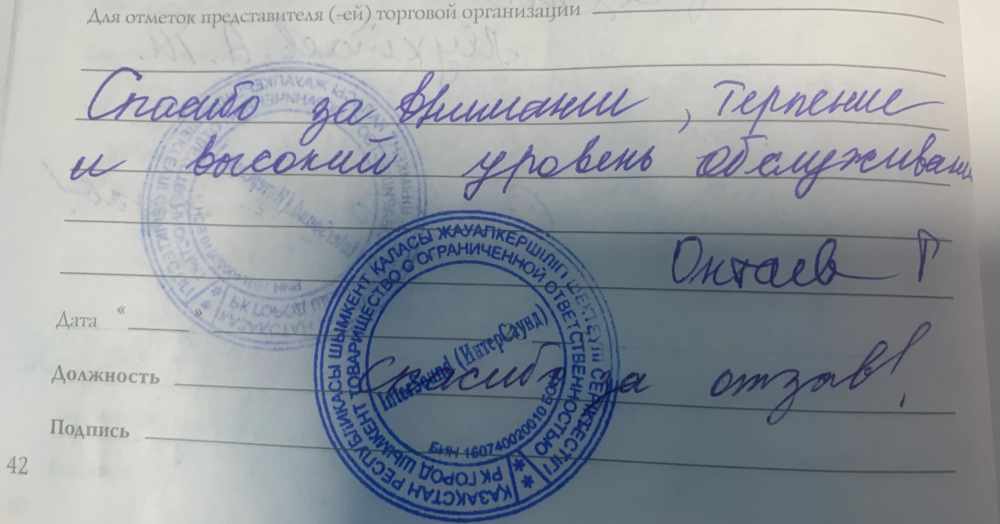 Для отметок представителя (-ей) торговой организации
Спасибо за внимании, Терпение
и высокий уровень обслуживани
Онтаев Г
Дата " "
Должность
Спасибо за отзав!
Подпись
42
ҚАЗАҚСТАН РЕСПУБЛИКАСЫ ШЫМКЕНТ ҚАЛАСЫ ЖАУАПКЕРШІЛІГІ ШЕКТЕУЛІ СЕРІКТЕСТІГІ
РК ГОРОД ШЫМКЕНТ ТОВАРИЩЕСТВО С ОГРАНИЧЕННОЙ ОТВЕТСТВЕННОСТЬЮ
InterSound (ИнтерСаунд)
БИН 160740020010